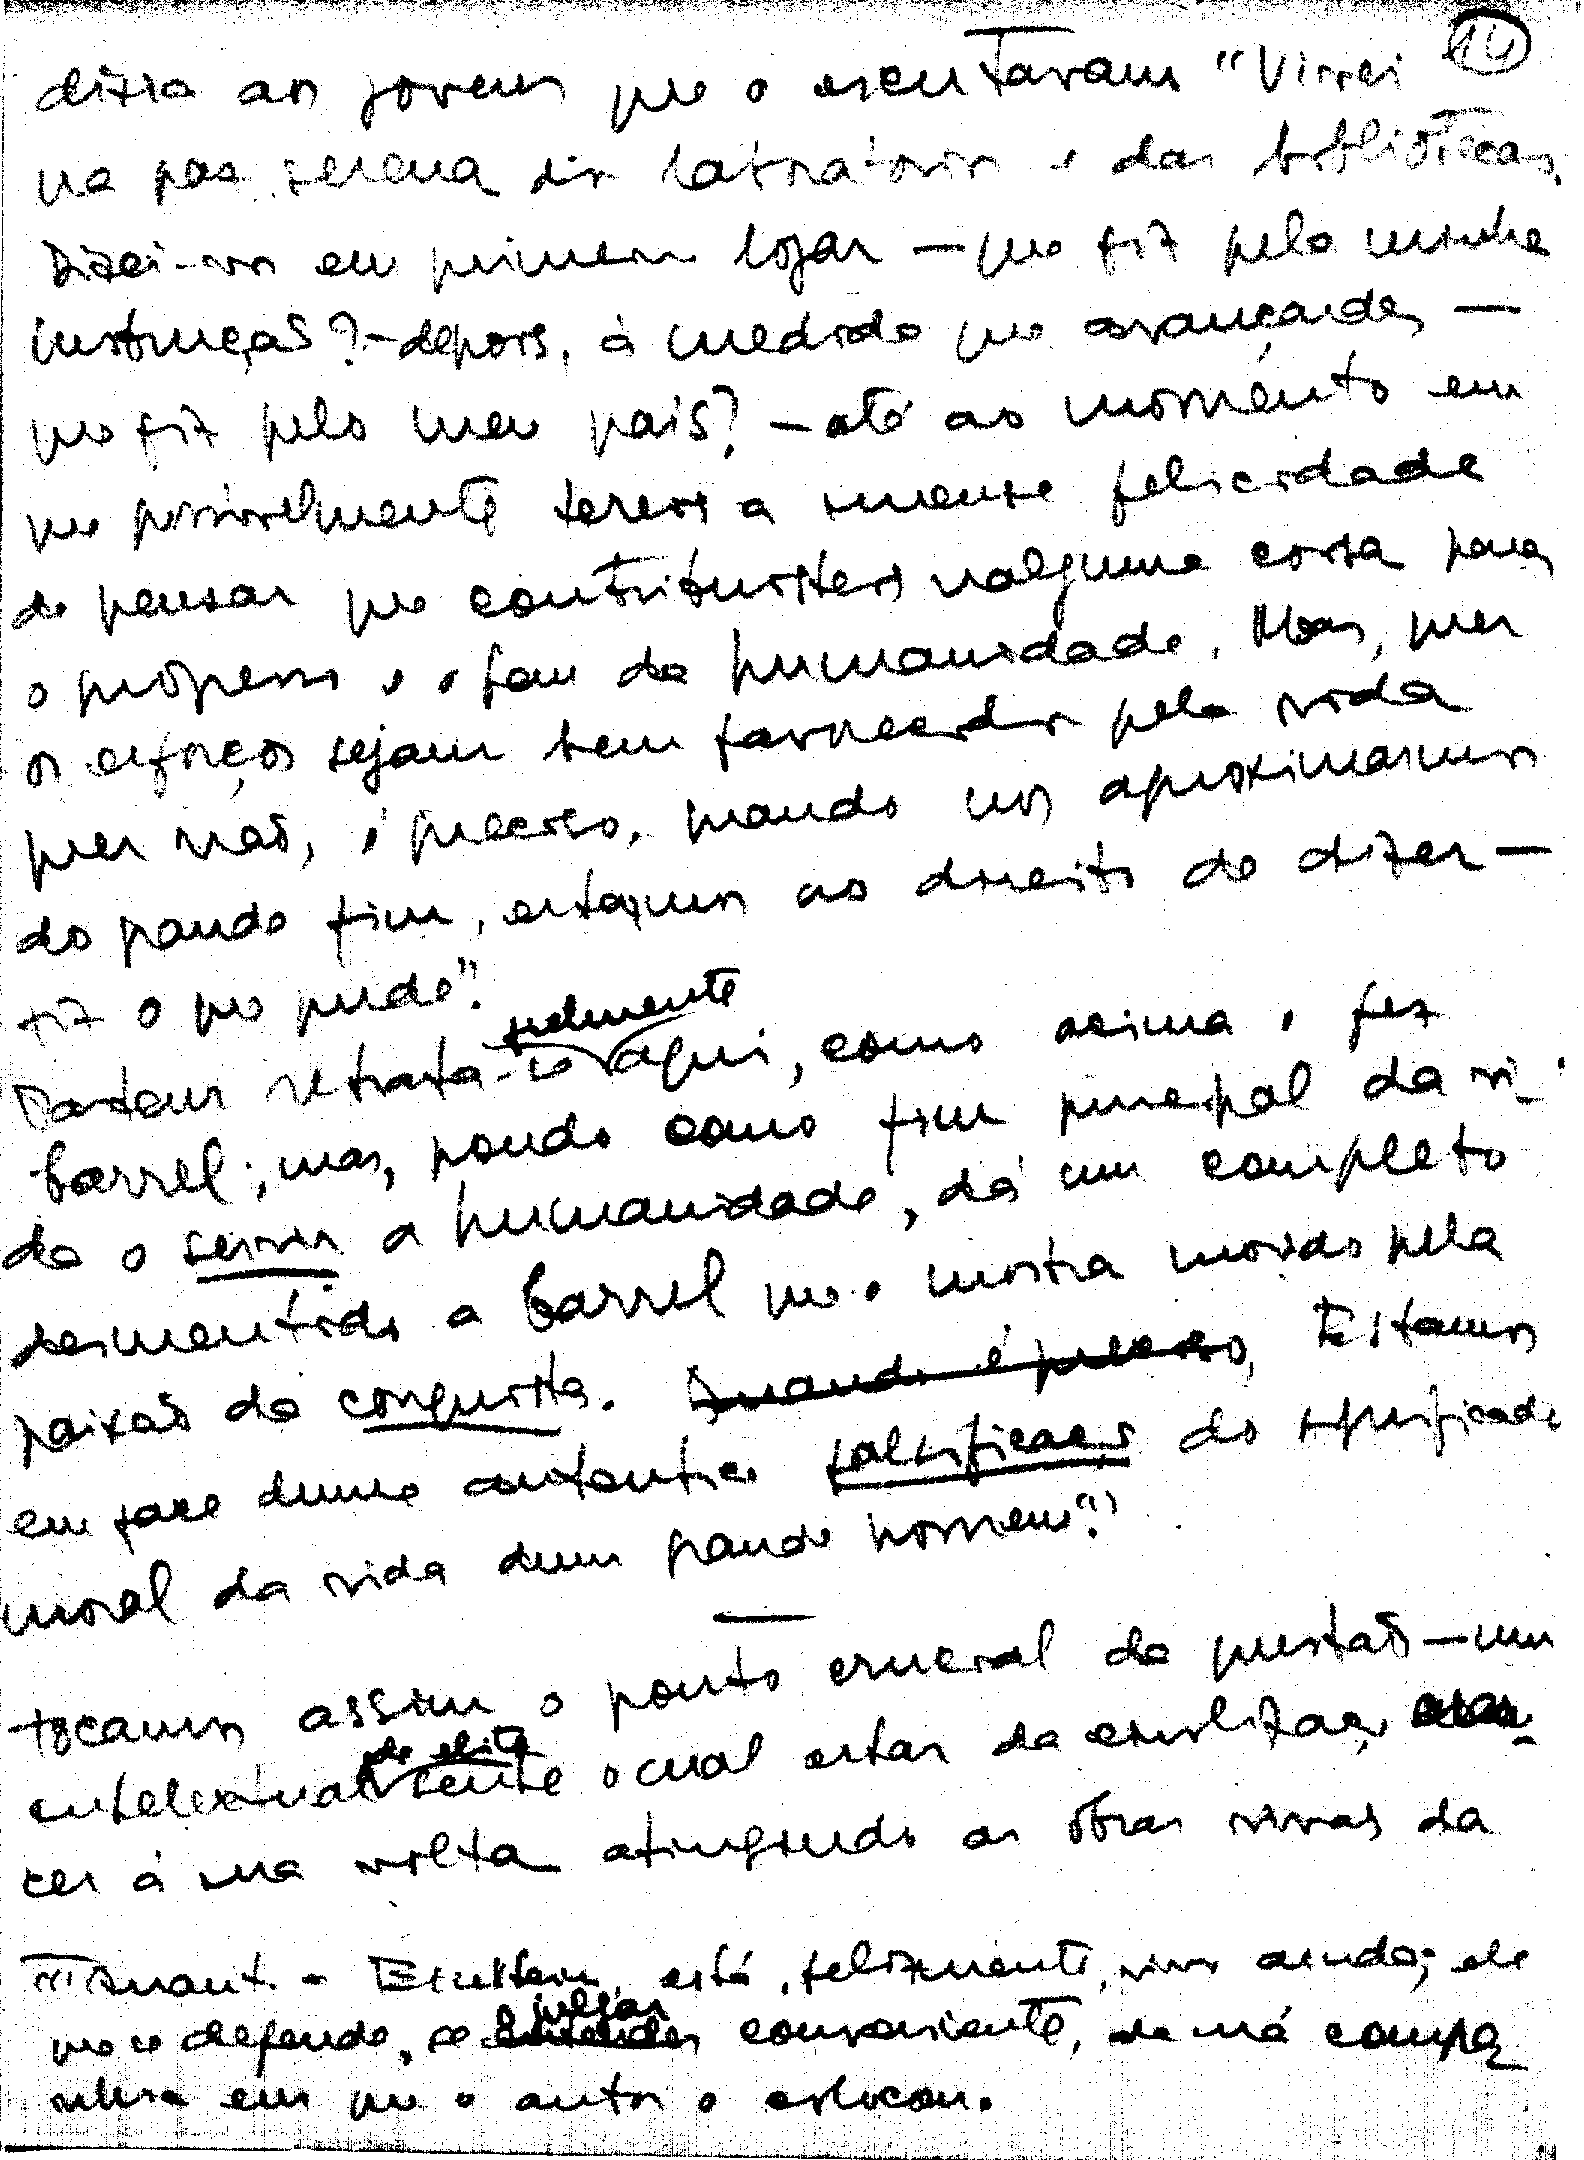 14
dizia aos jovens que o escutavam "Vivei
na paz serena dos laboratórios e das bibliotecas,
Dizei-vos em primeiro logar — que fiz pela minha
instrução? — depois, à medida que avançardes, —
que fiz pelo meu país? — até ao momento em
que possivelmente tereis a imensa felicidade
de pensar que contribuisteis nalguma coisa para
o progresso e o bem da humanidade. Mas, quer
os esforços sejam bem favorecidos pela vida
quer não, é preciso, quando nos aproximamos
do grande fim, estarmos no direito de dizer —
fiz o que pude".
Pasteur retrata-se fielmente aqui, como acima o fez
Carrel; mas, pondo como fim principal da vi-
da o servir a humanidade, dá um completo
desmentido a Carrel que o mostra movido pela
paixão da conquista. Quando é preciso, Estamos
em face duma autentica falsificação do significado
moral da vida dum grande homem."
Tocamos assim o ponto crucial da questão — um
intelectual de elite sente o mal estar da civilização
cer à sua volta atingindo as obras vivas da
Quanto a Einstein, está, felizmente, vivo ainda; ele
que se defenda, se julgar conveniente, da má compa
nhia em que o autor o colocou.